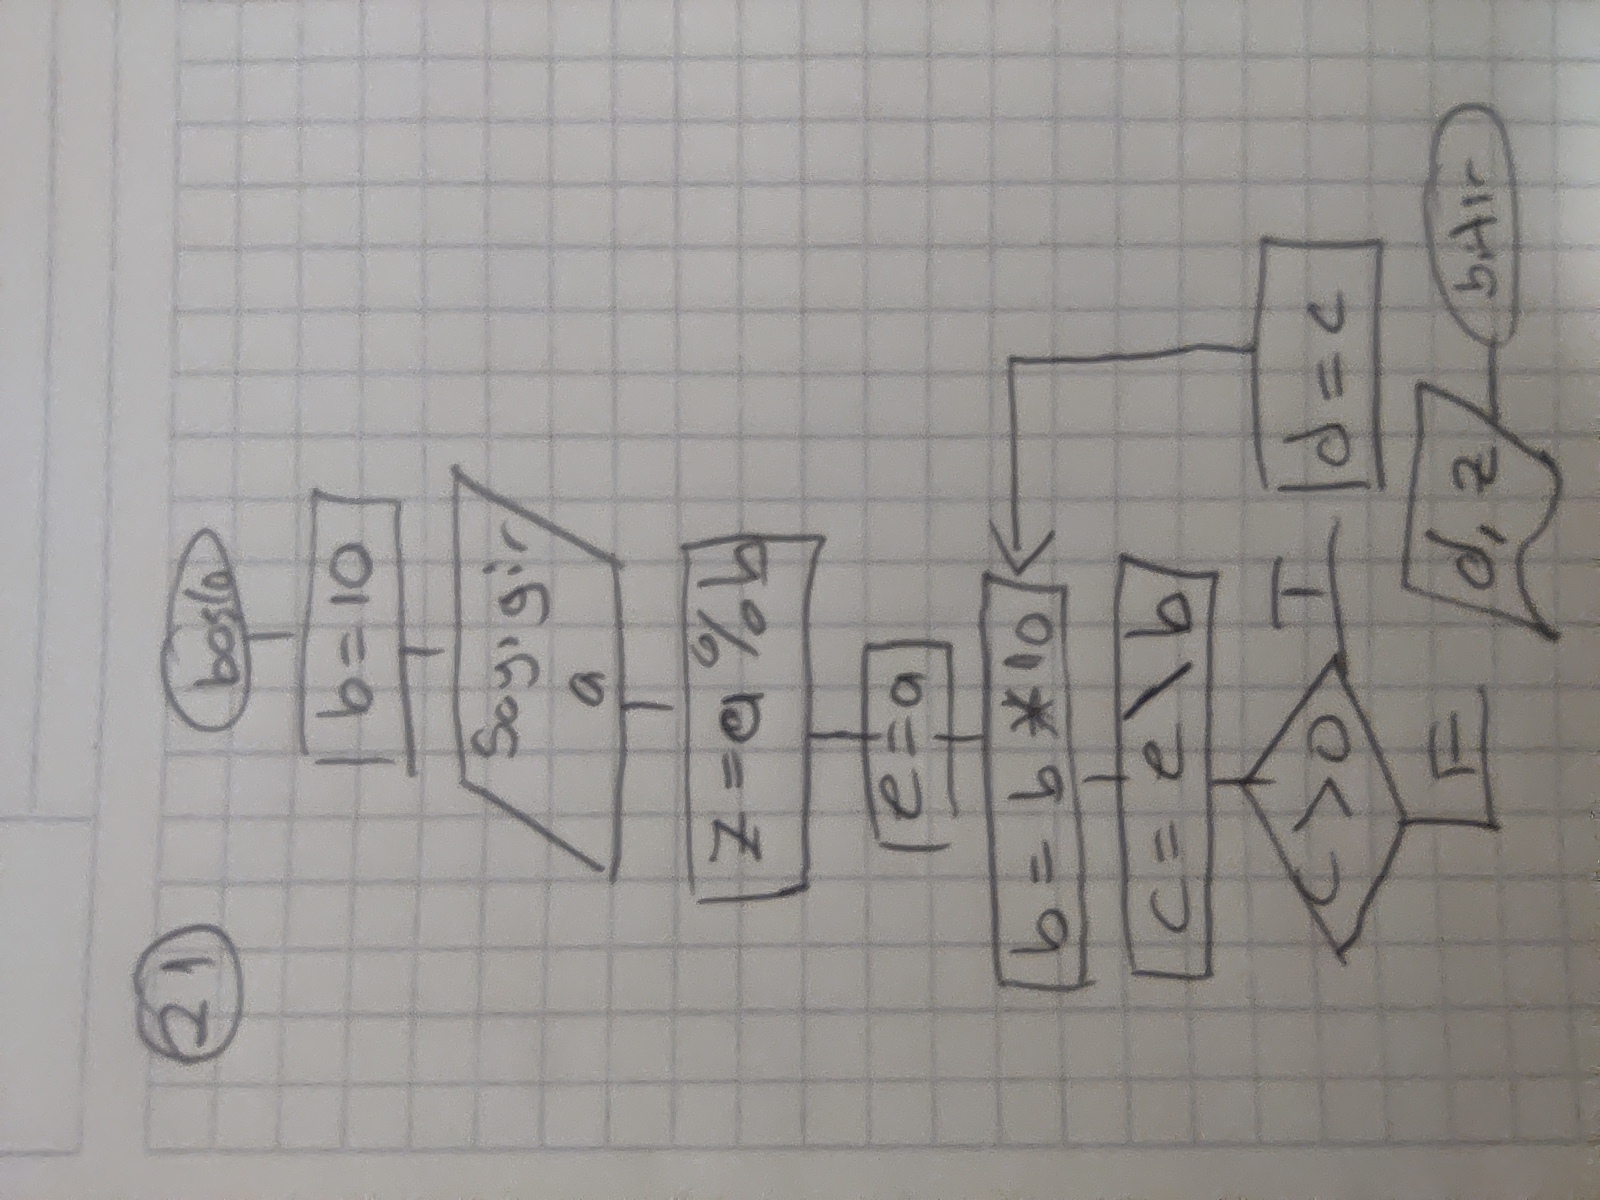 21
başla
b=10
Sayı gir
a
z=a%b
e=a
b = b *10
c= e\b
c>0
T
d=c
F
d, z
bitir